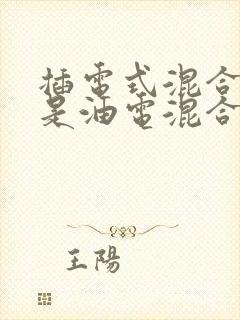 插電式混合
是油電混合
王陽